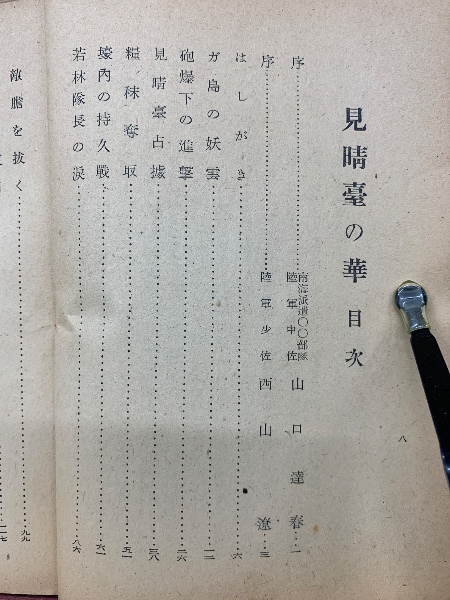 見晴臺の華 目次
序……南海派遣〇〇部隊 陸軍中佐 山口達春…一
序……陸軍少佐 西山遼…三
はしがき……六
ガ島の妖雲……一二
砲爆下の進撃……二六
見晴臺占據……三八
糧秣奪取……五一
壕內の持久戰……六一
若林隊長の淚……八六
敵膽を拔く……九九
八